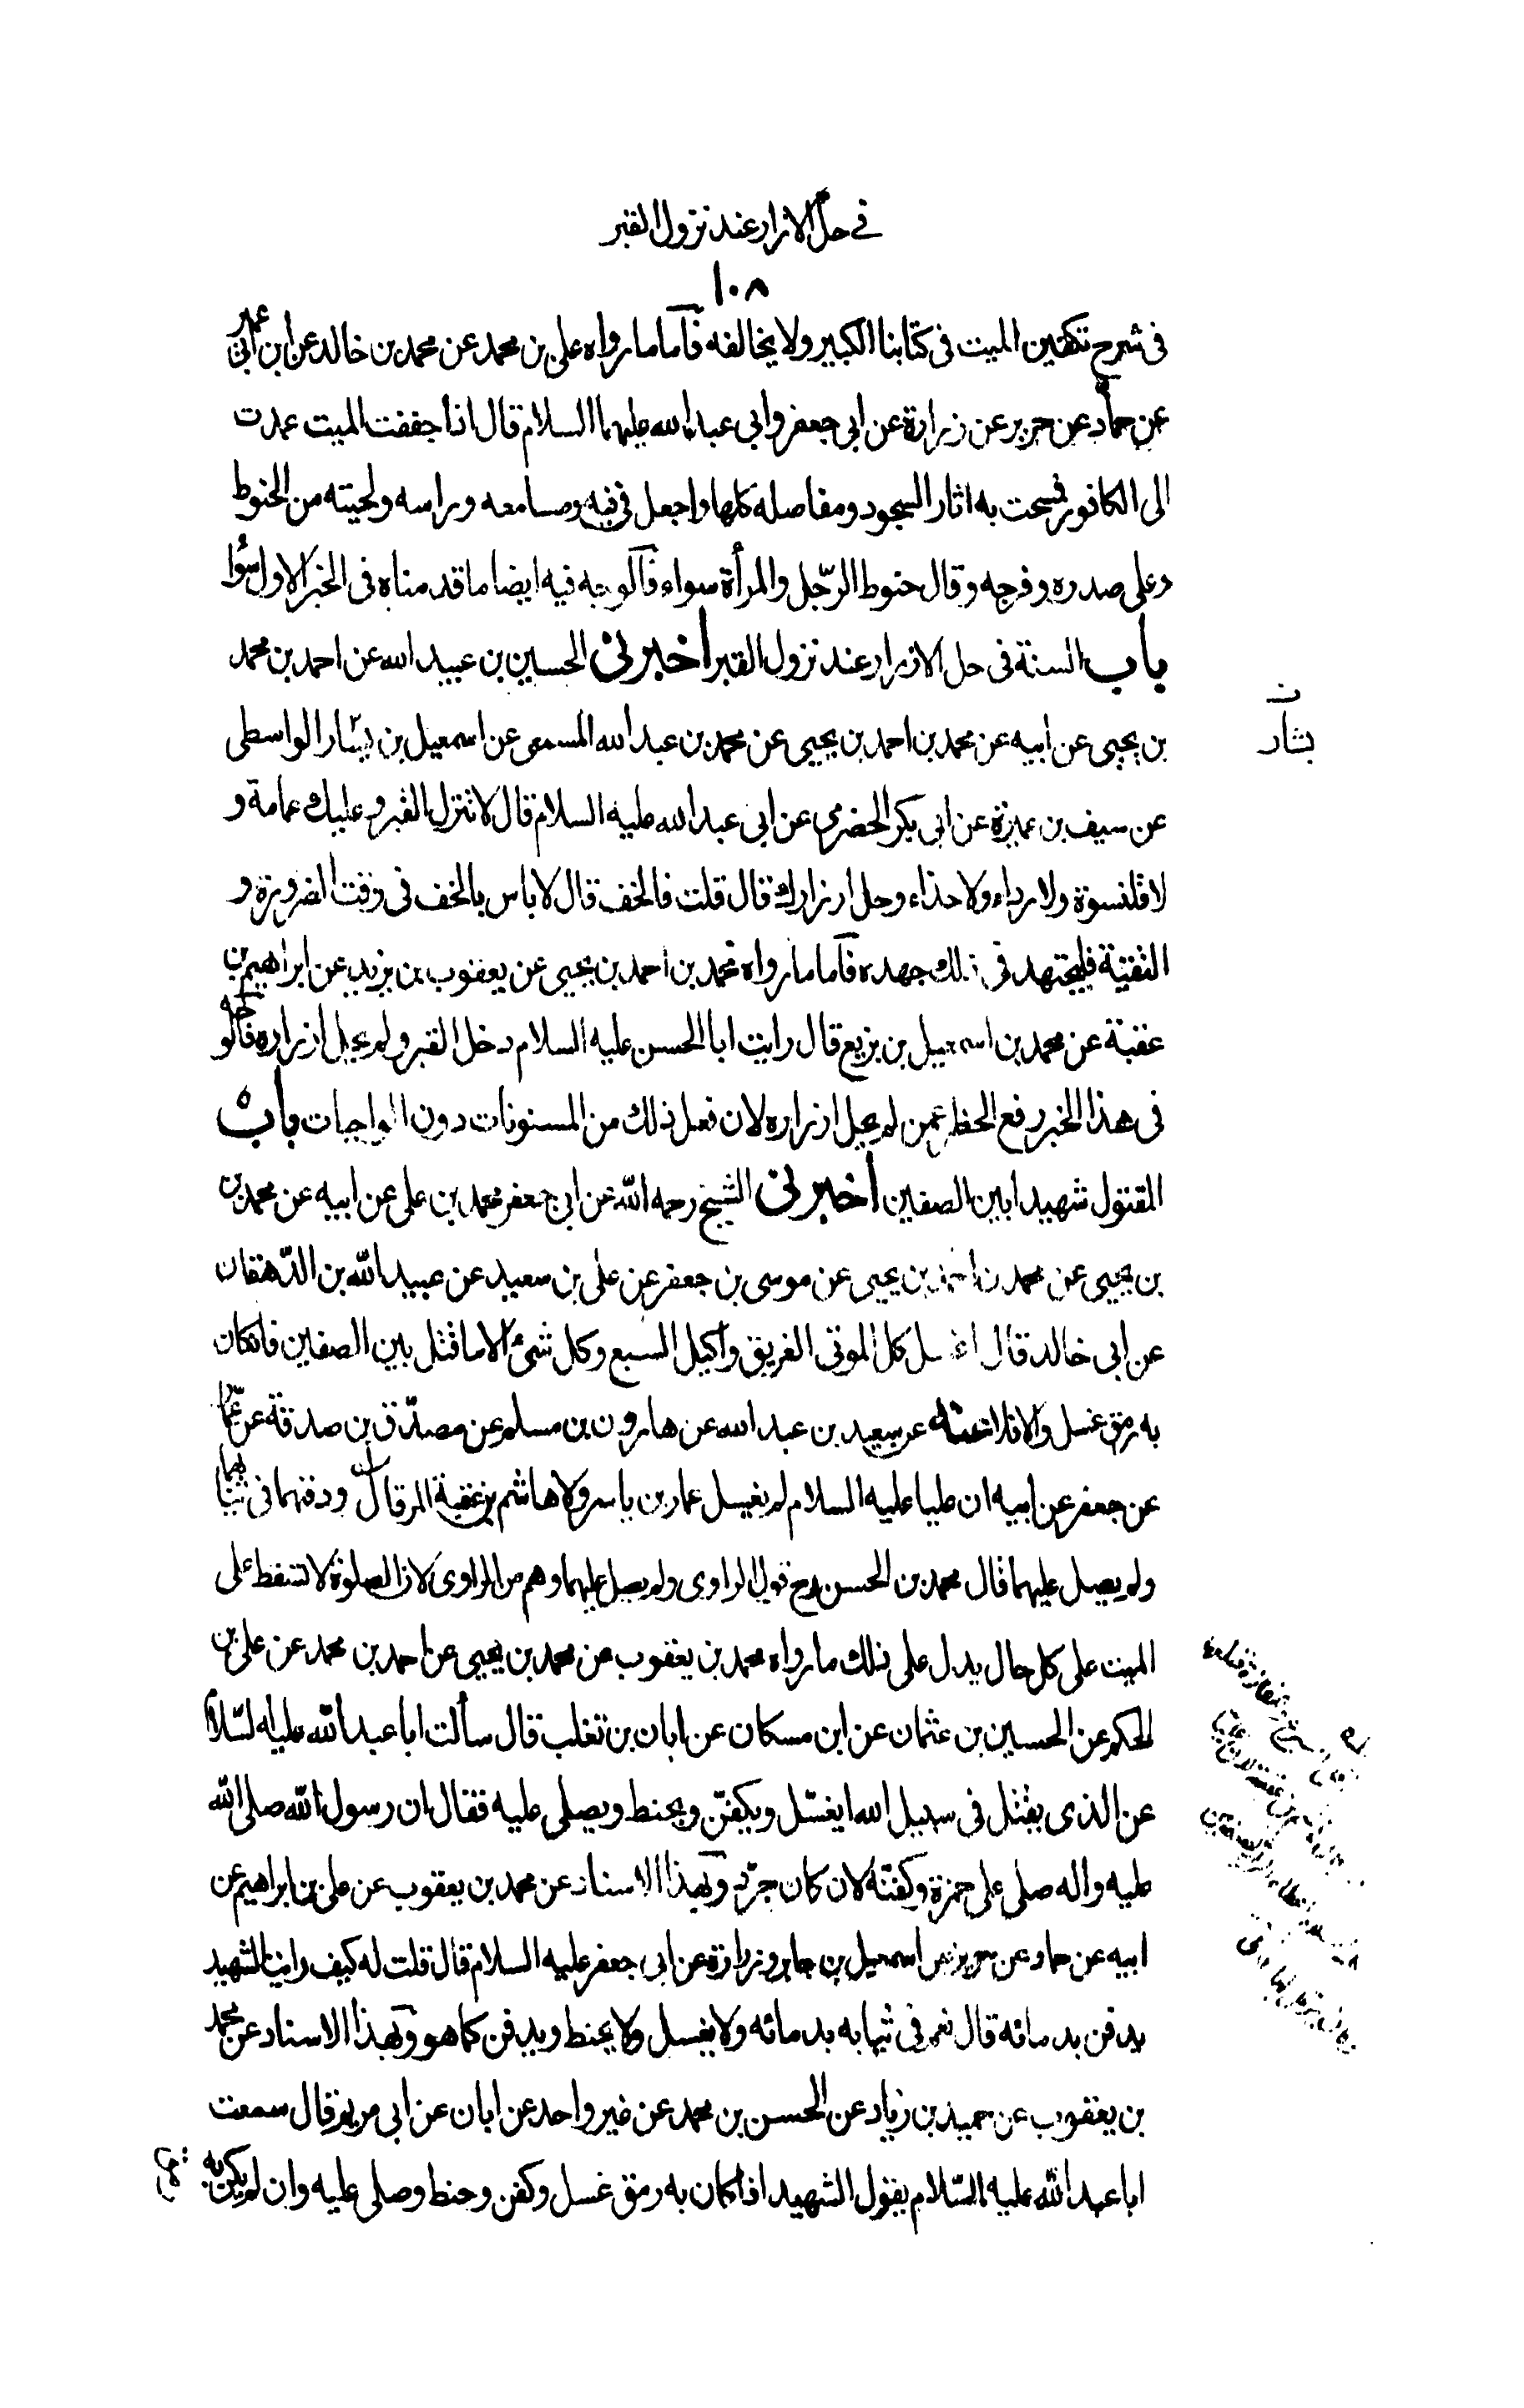 في حل الازرار عند نزول القبر
١٠٨
فى شرح تكفين الميت فى كتابنا الكبير ولا يخالفه فاما ما رواه على بن محمد عن محمد بن خالد عن ابن ابى عمير
عن حماد عن حريز عن زرارة عن ابى جعفر وابى عبدالله عليهما السلام قال اذا جففت الميت عمدت
الى الكافور فمسحت به اثار السجود ومفاصله كلها واجعل فى فيه ومسامعه وراسه ولحيته من الحنوط
وعلى صدره وفرجه وقال حنوط الرّجل والمرأة سواء فالوجه فيه ايضا ما قدمناه فى الخبر الاول سواء
باب السنة فى حل الازرار عند نزول القبر اخبرنى الحسين بن عبيد الله عن احمد بن محمد
بن يحيى عن ابيه عن محمد بن احمد بن يحيى عن محمد بن عبد الله المسمعى عن اسمعيل بن يسار الواسطى
ن
بشار
عن سيف بن عميرة عن ابى بكر الحضرمى عن ابى عبدالله عليه السلام قال لا تنزل القبر وعليك عمامة و
لا قلنسوة ولا رداء ولا حذاء وحل ازرارك قال قلت فالخف قال لا باس بالخف فى وقت الضرورة و
التقية فليجتهد فى ذلك جهده فاما ما رواه محمد بن احمد بن يحيى عن يعقوب بن يزيد عن ابراهيم بن
عقبة عن محمد بن اسمعيل بن بزيع قال رايت ابا الحسن عليه السلام دخل القبر ولم يحل ازراره فالوجه
فى هذا الخبر رفع الحظر عمن لم يحل ازراره لان فعل ذلك من المسنونات دون الواجبات باب
المقتول شهيدا بين الصفين اخبرنى الشيخ رحمه الله عن ابى جعفر محمد بن على عن ابيه عن محمد بن
بن يحيى عن محمد بن احمد بن يحيى عن موسى بن جعفر عن على بن سعيد عن عبيد الله بن الدّهقان
عن ابى خالد قال اغسل كل الموتى الغريق واكيل السبع وكل شئ الا ما قتل بين الصفين فان كان
به رمق غسل والا فلا عنه عن سعيد بن عبد الله عن هارون بن مسلم عن مصدّق بن صدقة عن عمّار
عن جعفر عن ابيه ان عليا عليه السلام لم يغسل عمار بن ياسر ولا هاشم بن عتبة المرقال ودفنهما فى ثيابهما
ولم يصل عليهما قال محمد بن الحسن رح قول الراوى ولم يصل عليهما وهم من الراوى لان الصلوة لا تسقط على
الميت على كل حال يدل على ذلك ما رواه محمد بن يعقوب عن محمد بن يحيى عن احمد بن محمد عن على بن
الحكم عن الحسين بن عثمان عن ابن مسكان عن ابان بن تغلب قال سألت ابا عبدالله عليه السّلام
عن الذى يقتل فى سبيل الله ايغسّل ويكفّن ويحنط ويصلى عليه فقال ان رسول الله صلى الله
عليه واله صلى على حمزة وكفنه لان كان جرّد وبهذا الاسناد عن محمد بن يعقوب عن على بن ابراهيم عن
ابيه عن حماد عن حريز عن اسمعيل بن جابر وزرارة عن ابى جعفر عليه السلام قال قلت له كيف رايت الشهيد
يدفن بدمائه قال نعم فى ثيابه بدمائه ولا يغسل ولا يحنط ويدفن كما هو وبهذا الاسناد عن محمد
بن يعقوب عن حميد بن زياد عن الحسن بن محمد عن غير واحد عن ابان عن ابى مريم قال سمعت
ابا عبدالله عليه السّلام يقول الشهيد اذا كان به رمق غسل وكفن وحنط وصلى عليه وان لم يكن به